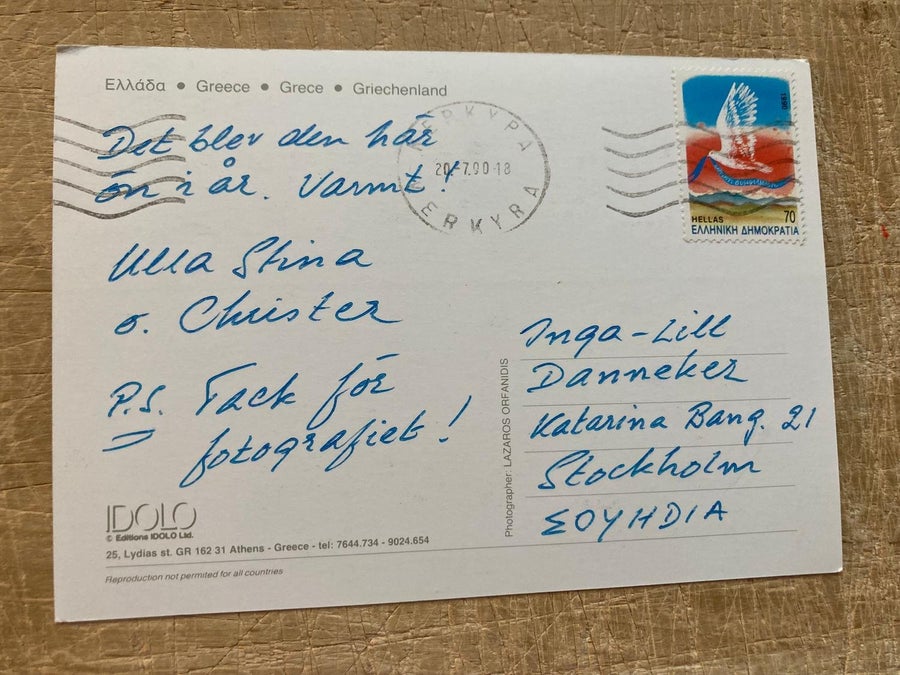 Ελλάδα • Greece • Grece • Griechenland
Det blev den här
ön i år. Varmt!
Ulla Stina
o. Christer
P.S. Tack för
fotografiet!
IDOLO
© Editions IDOLO Ltd.
25, Lydias st. GR 162 31 Athens - Greece - tel: 7644.734 - 9024.654
Reproduction not permited for all countries
Photographer: LAZAROS ORFANIDIS
ΕΡΚΥΡΑ
20.7.90-18
ERKYRA
1990
HELLAS 70
ΕΛΛΗΝΙΚΗ ΔΗΜΟΚΡΑΤΙΑ
Inga-Lill
Danneker
Katarina Bang. 21
Stockholm
ΣΟΥΗΔΙΑ